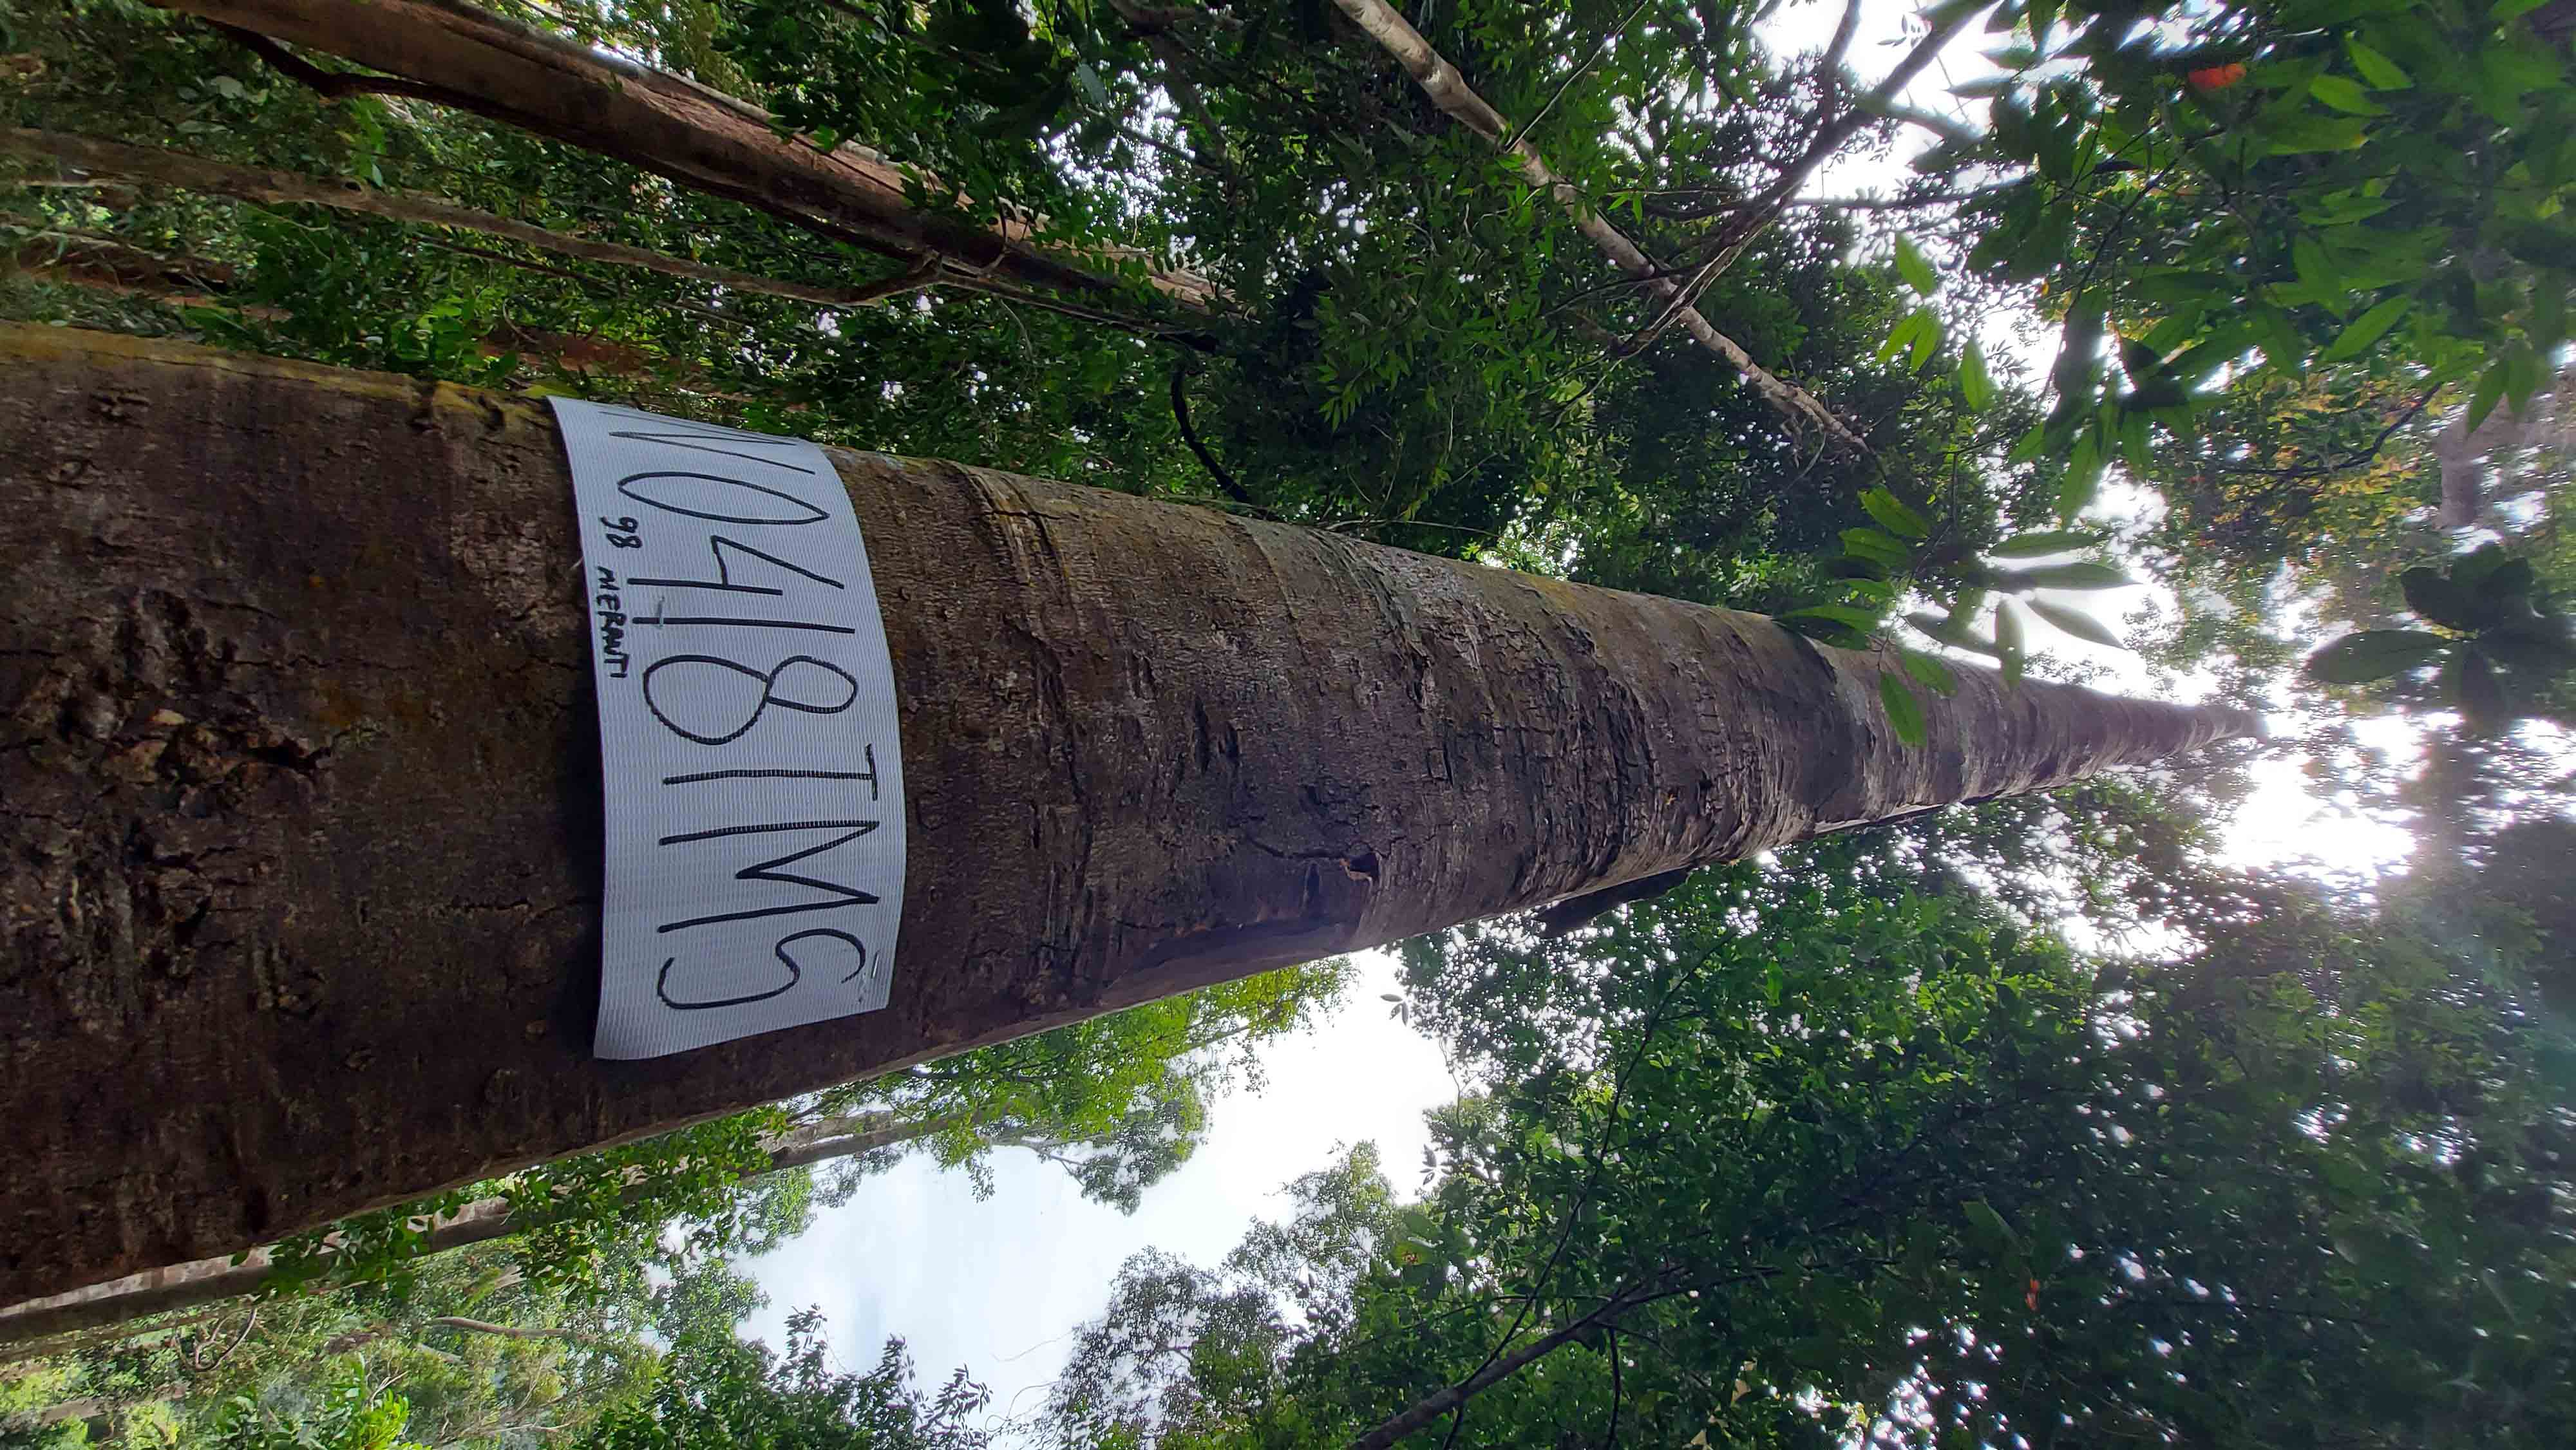 N0418TMS
98 MERANTI